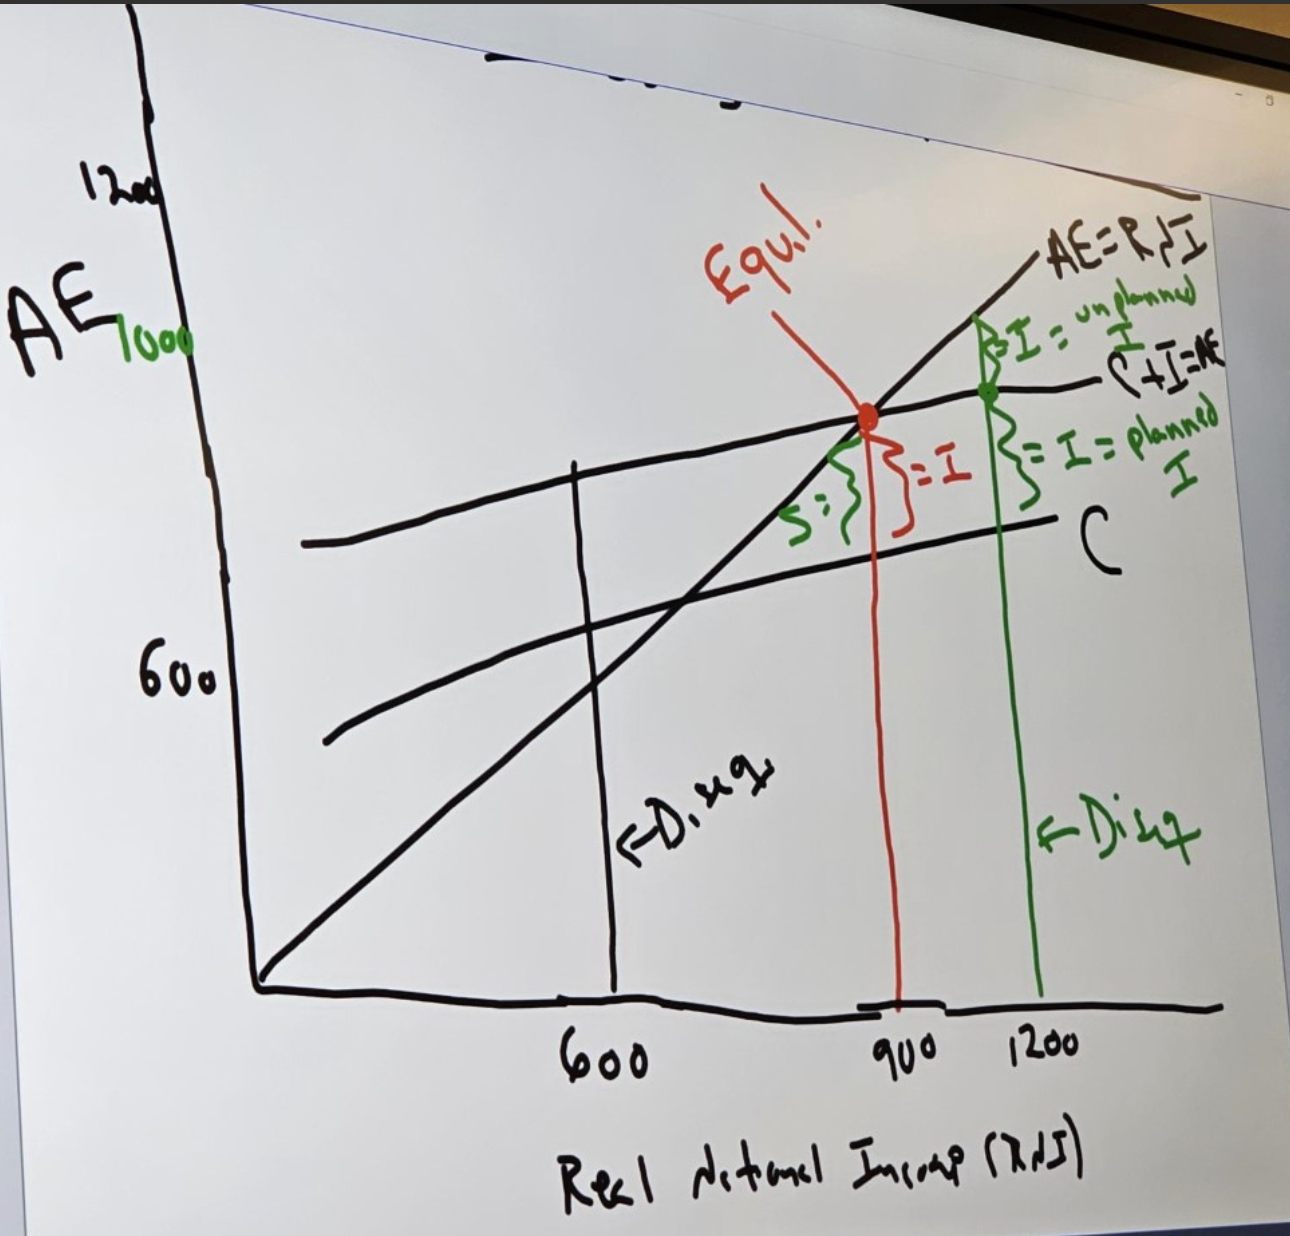 1200
AE
1000
600
Equil.
AE=RNI
I = unplanned
I
C+I=AE
= I = planned
I
S =
= I
C
←Diseq
←Diseq
600
900
1200
Real National Income (RNI)